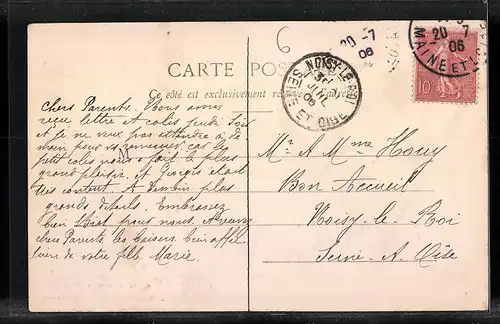 6
20-7
06
20 7
06
MAINE ET
10
CARTE POS
Ce côté est exclusivement
NOISY-LE-ROI
JUIL
06
SEINE ET OISE
chers Parents. Nous avons
reçu lettre et colis jeudi soir
et je n'ai pas attendre à de
main pour vous remercier car le
petit colis nous a fait le plus
grand plaisir. et Georges était
très content. A demain plus
grands détails. Embrassez
bien pour nous. Avenir
chers Parents les baisers bien affec
tueux de votre fille Marie.
Mr A Mme Houy
Bon Accueil
Noisy-le-Roi
Seine-A-Oise